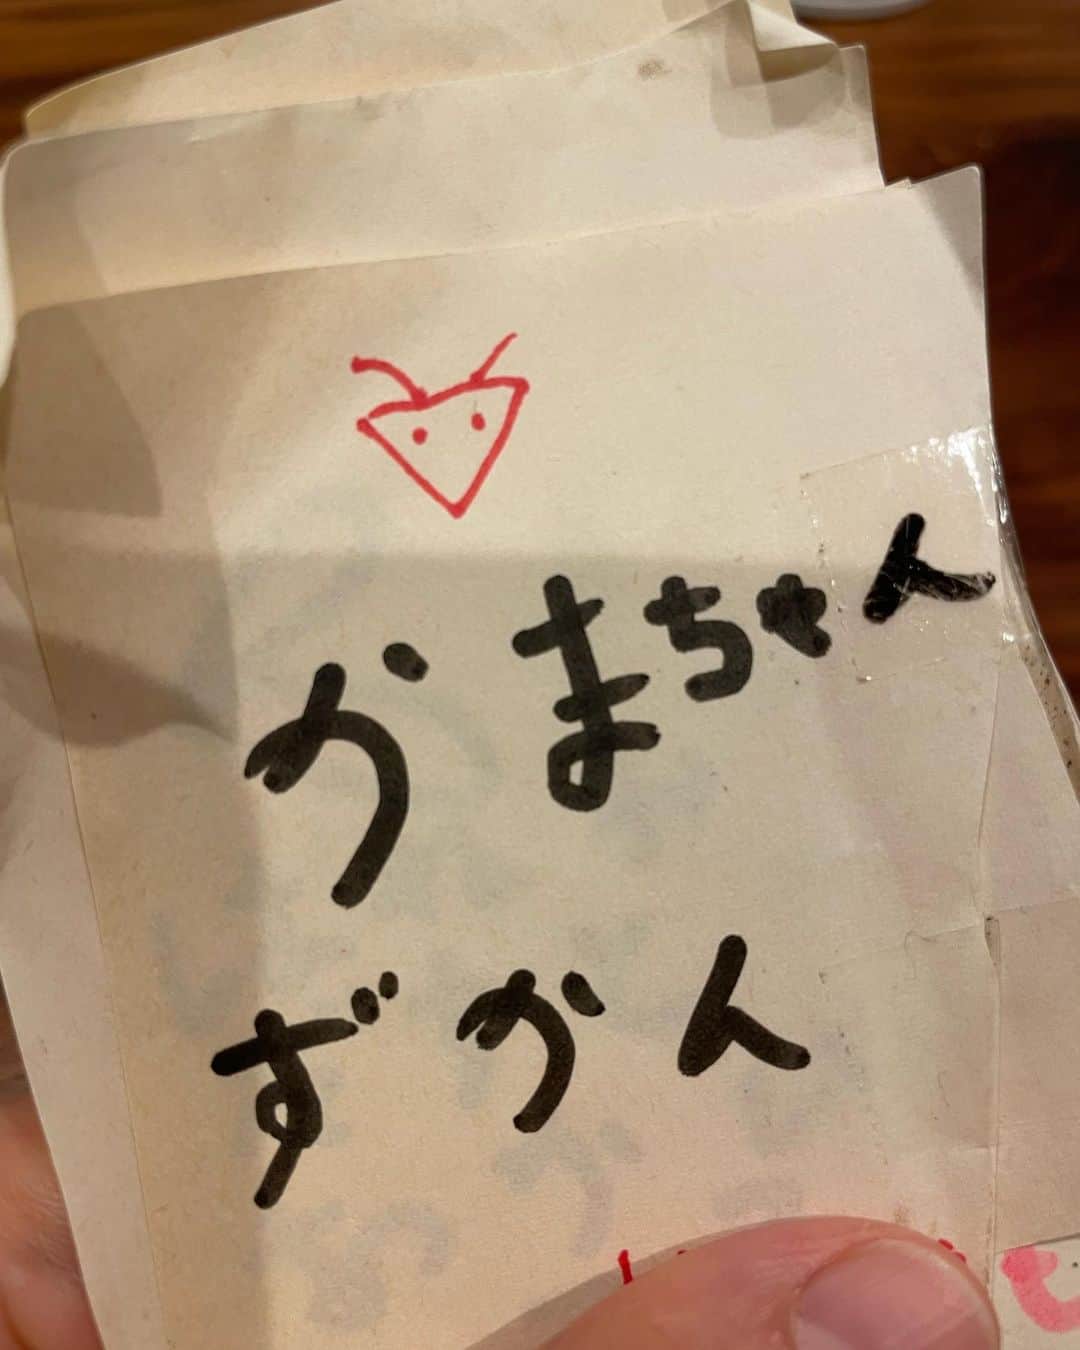 かまちゃん
ずかん